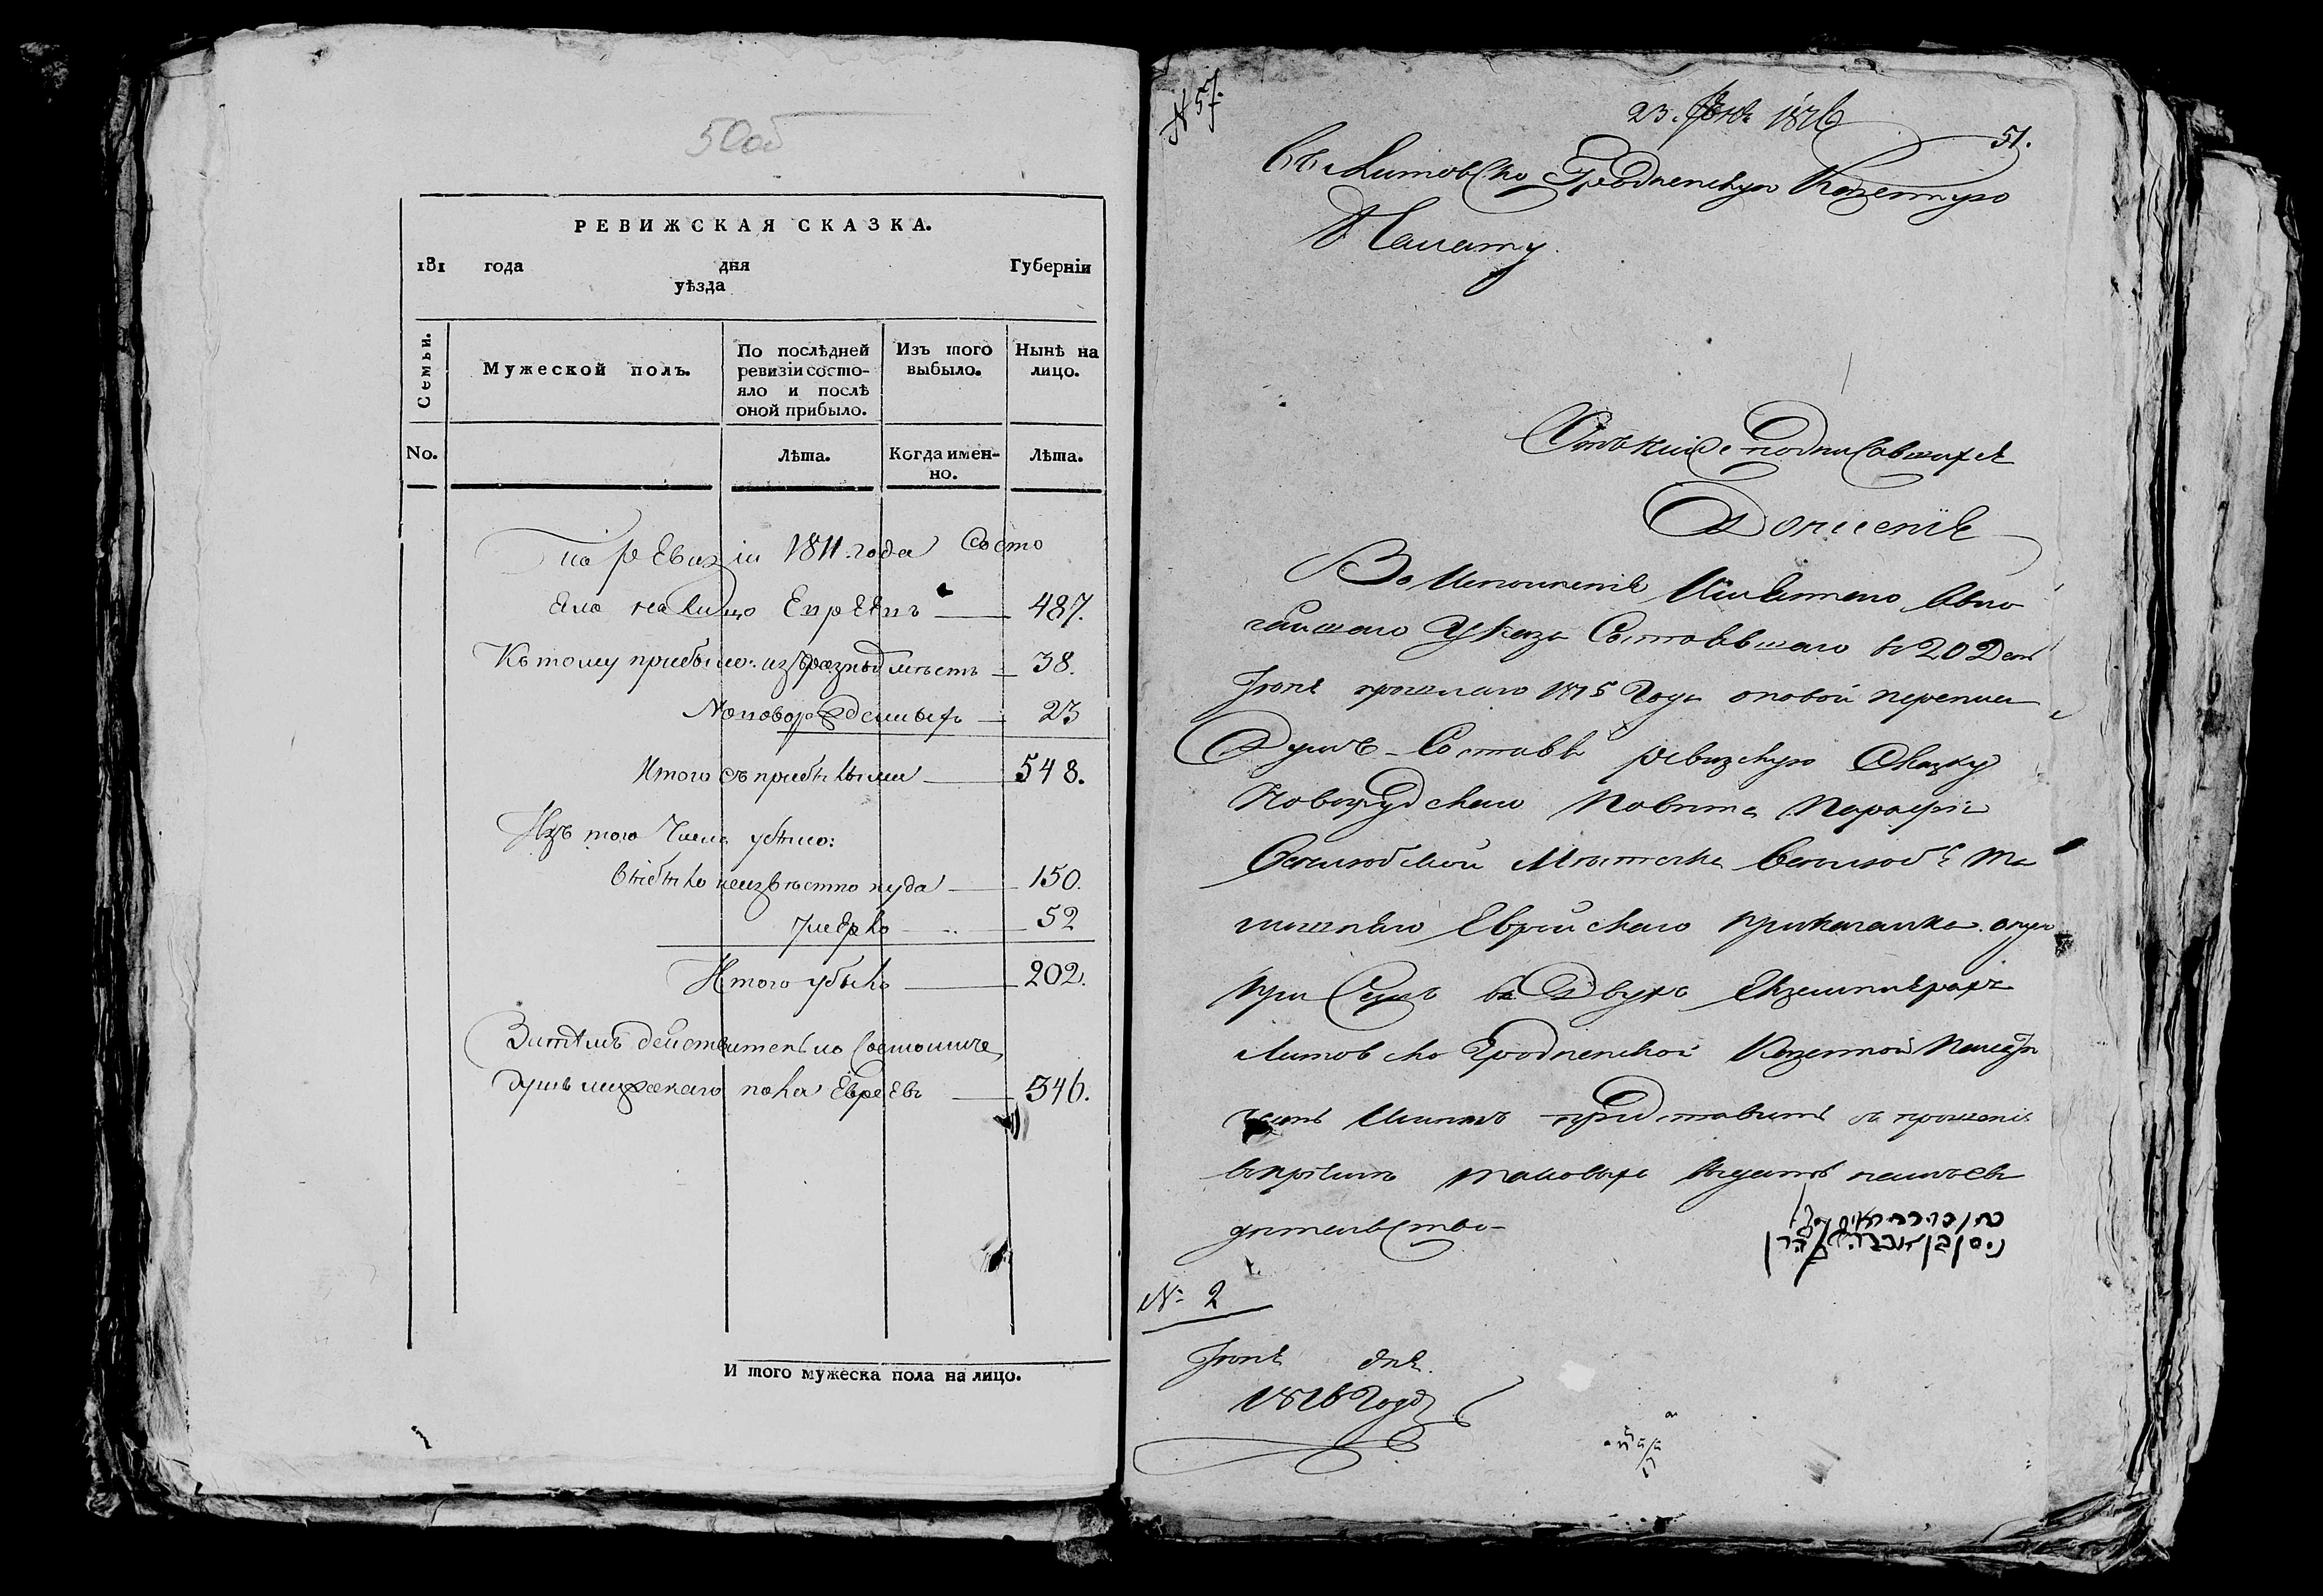 50об
РЕВИЖСКАЯ СКАЗКА.
181 года дня Губерніи
уѣзда
Семьи.
Мужеской полъ.
По послѣдней ревизіи состо-
яло и послѣ оной прибыло.
Изъ того выбыло.
Нынѣ на лицо.
No.
Лѣта.
Когда имен-
но.
Лѣта.
по ревизіи 1811. года Состо
яло на лицо Евреевъ 487.
Къ тому прибыло: изъ разныхъ мѣстъ 38.
Новорожденныхъ 23
Итого съ прибылыми 548.
Изъ того Числа убыло:
выбыло неизвѣстно куда 150.
умерло 52
Итого убыло 202.
Затѣмъ действительно состоитъ
душъ мужескаго пола Евреевъ 346.
И того мужеска пола на лицо.
N 57.
23. 1816
51.
Въ Литовско Гродненскую Казенную
Палату.
Отъ ниже подписавшихся
Доношеніе
Во Исполненіе Имяннаго Высо
чайшаго Указа Состоявшаго въ 20 День
Іюня прошлаго 1815 Года о новой переписи
Душъ Составя ревизскую Сказку
Новогрудскаго Повѣта Парафіи
Мѣстечка
Еврейскаго Прикагалка оную
при Семъ въ Двухъ Экземплярахъ
Литовско Гродненской Казенной Палатѣ
честь Имѣемъ представить съ прошеніемъ
таковыхъ выдать намъ сви
дѣтельство
№ 2
Іюня дня.
1816 Года